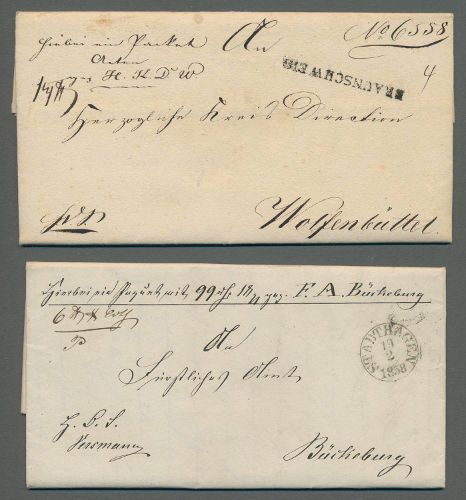 Hiebei ein Packet An No 6558
Acten 4
H. H. D. W
BRAUNSCHWEIG
Herzogliche Kreis Direction
Wolfenbüttel.
Hierbei ein Paquet mit 99 rh. 18 F. A. Bückeburg
STADTHAGEN
19
2
1858
An
Fürstliches Amt
H. D. S.
Bückeburg